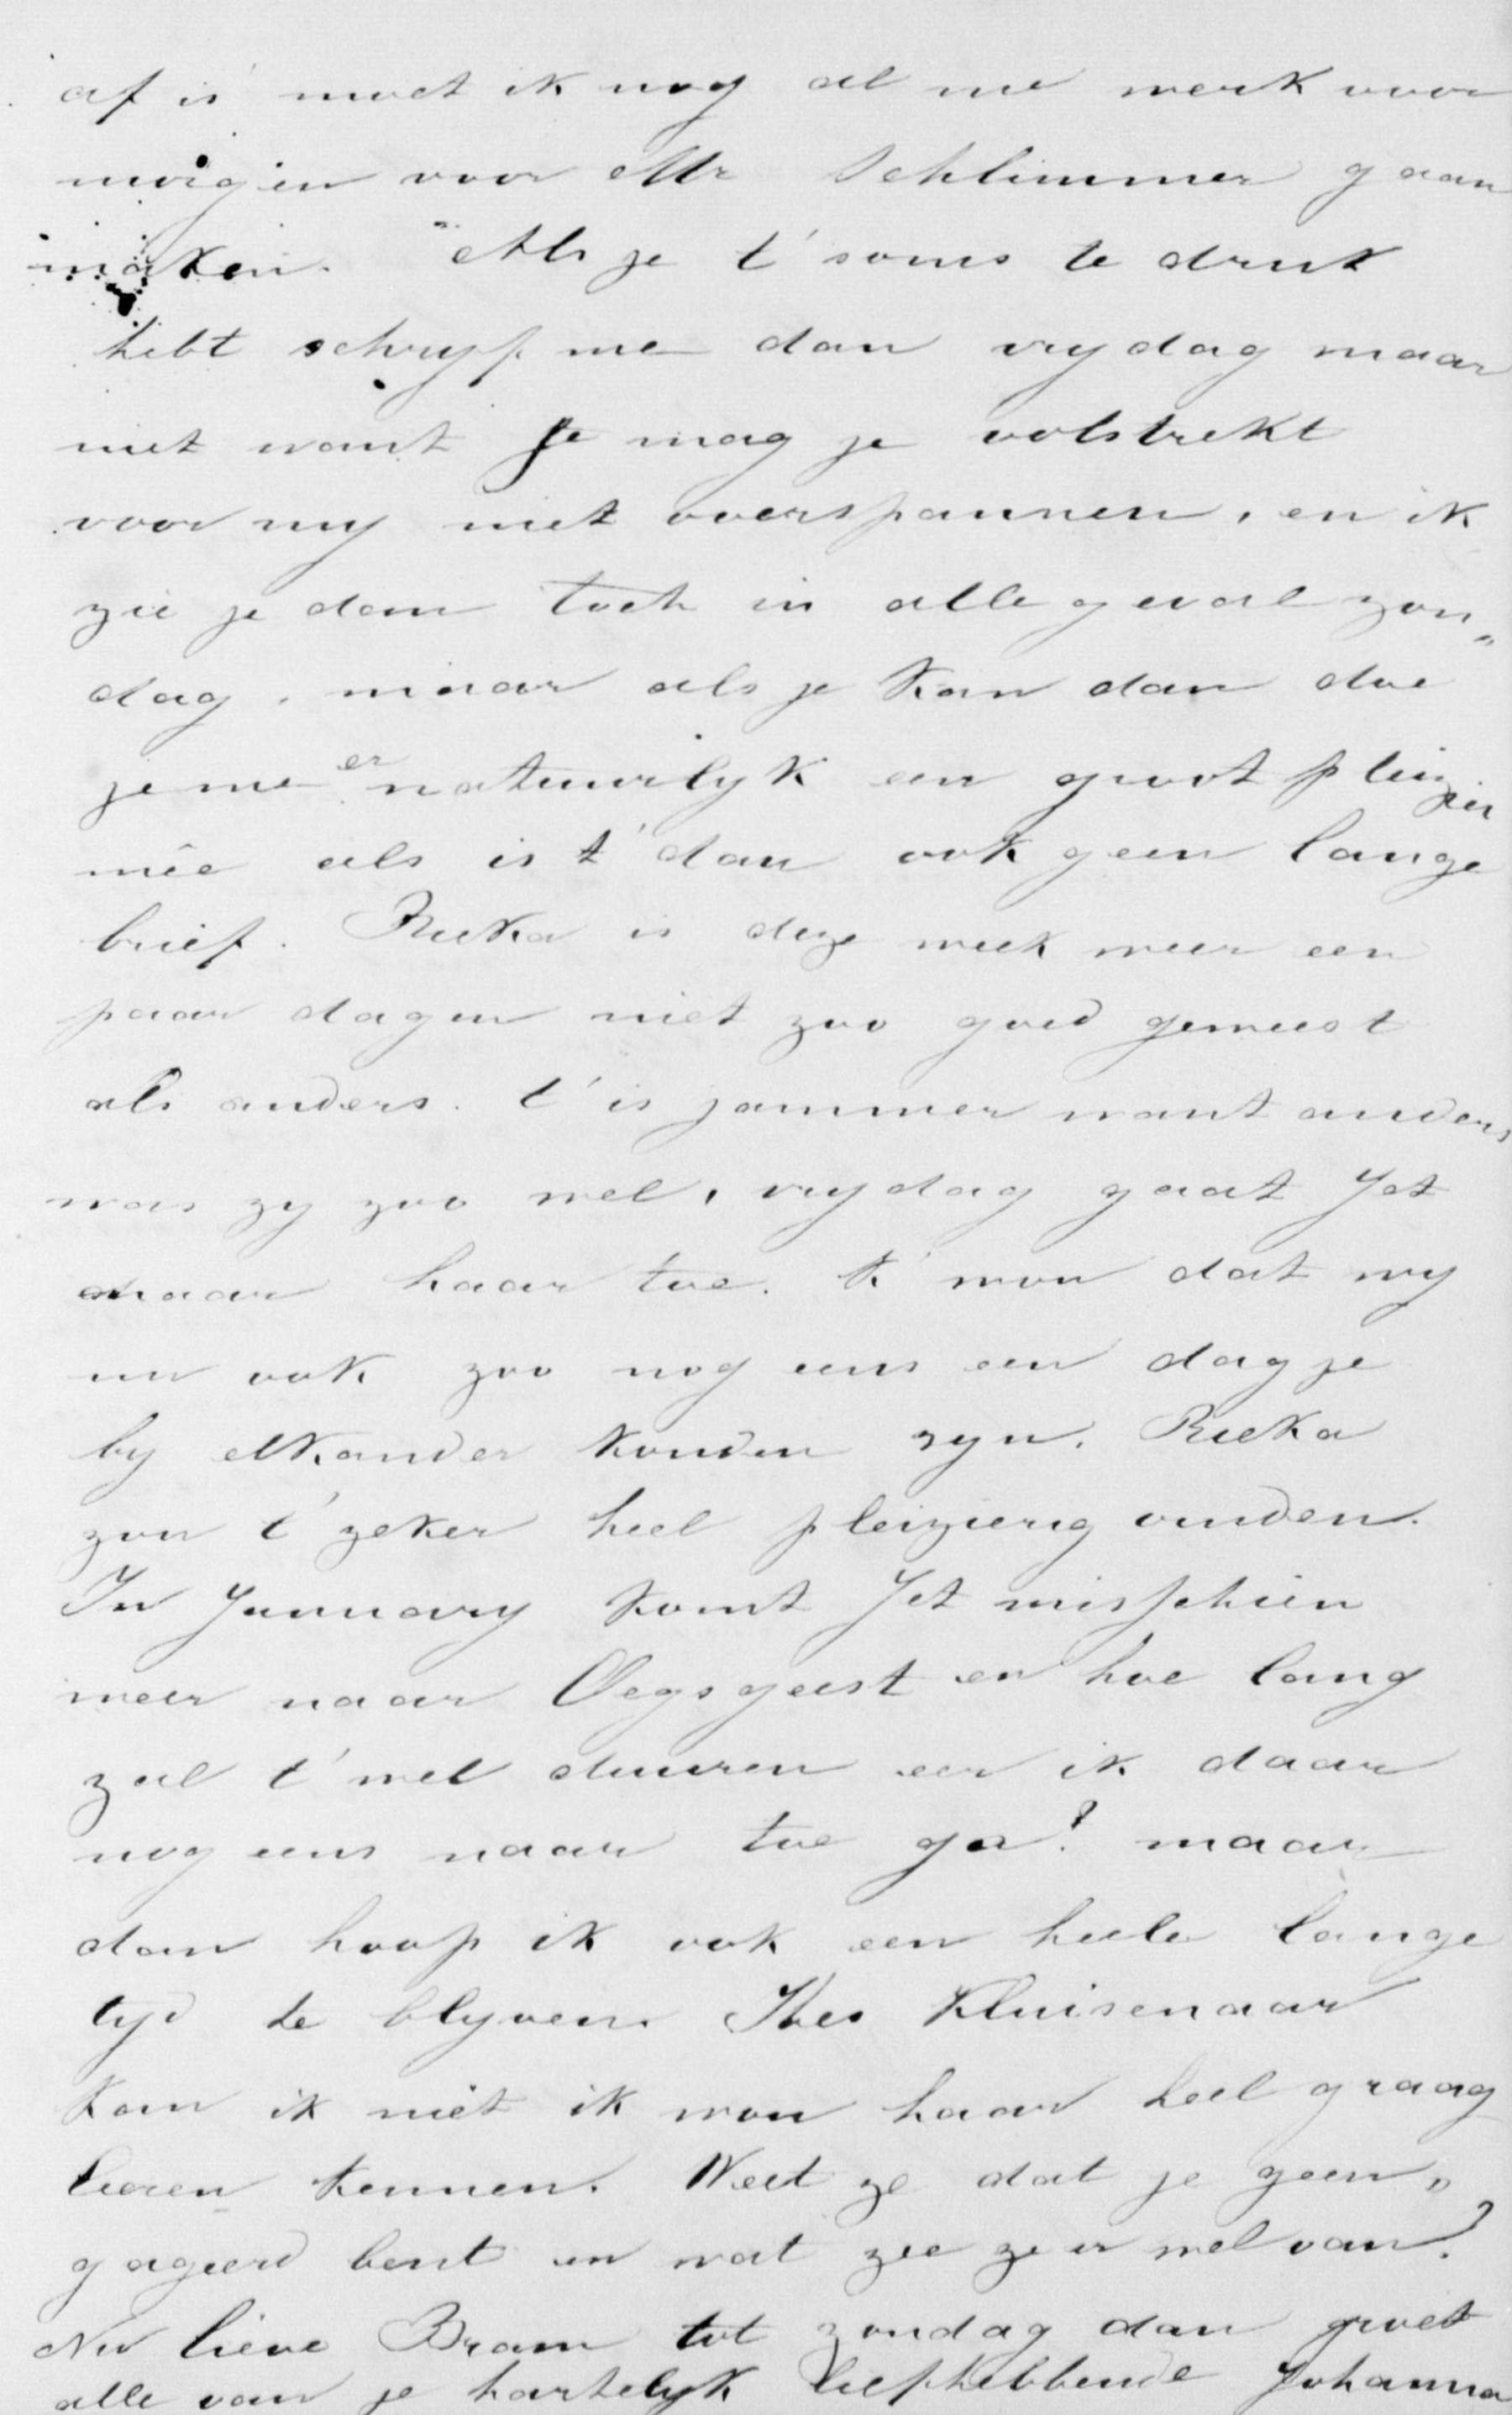 af is moet ik nog al me werk voor
morgen voor Mr Schlimmer gaan
maken. Als je t' soms te druk
hebt schryf me dan vrydag maar
niet want Je mag je volstrekt
voor my niet overspannen, en ik
zie je dan toch in alle geval zon„
dag, maar als je kan dan doe
je me er natuurlyk een groot pleizier
mêe als is t' dan ook geen lange
brief. Rieka is deze week weer een
paar dagen niet zoo goed geweest
als anders. t' is jammer want anders
was zy zoo wel, vrydag gaat Jet
naar haar toe. k' wou dat wy
nu ook zoo nog eens een dagje
by elkander konden zyn. Rieka
zou t' zeker heel pleizierig vinden.
In January komt Jet misschien
weer naar Oegsgeest en hoe lang
zal t' wel duuren eer ik daar
nog eens naar toe ga? maar
dan hoop ik ook een heele lange
tyd te blyven. Kluisenaar
kan ik niet ik wou haar heel graag
leeren kennen. Weet ze dat je geen„
gageerd bent en wat zee ze er wel van?
Nu lieve Bram tot zondag dan groet
alle van je hartelyk liefhebbende Johanna